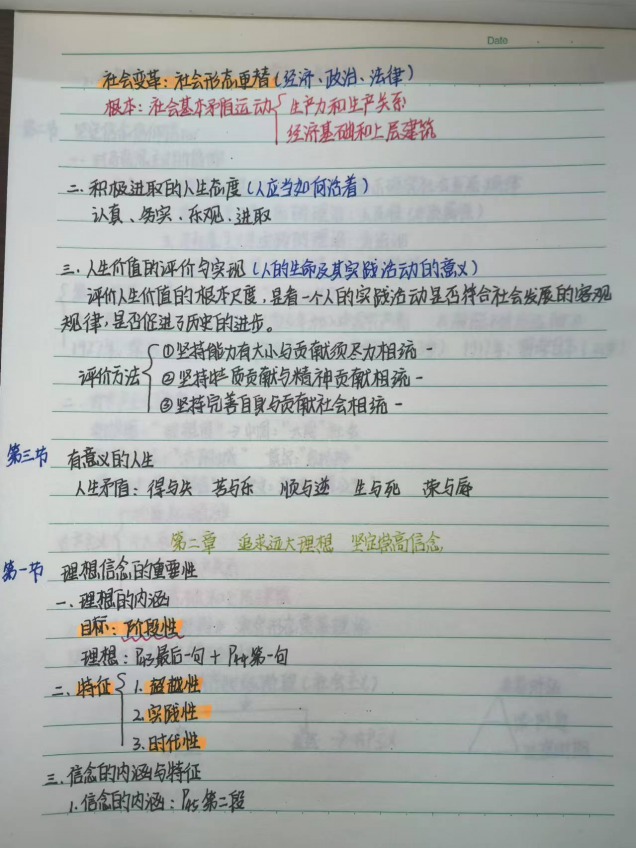 Date
社会变革：社会形态更替（经济、政治、法律）
根本：社会基本矛盾运动{生产力和生产关系
经济基础和上层建筑
二.积极进取的人生态度（人应当如何活着）
认真、务实.乐观.进取
三.人生价值的评价与实现（人的生命及其实践活动的意义）
评价人生价值的根本尺度，是看一个人的实践活动是否符合社会发展的客观
规律，是否促进了历史的进步。
①坚持能力有大小与贡献须尽力相统一
评价方法{②坚持物质贡献与精神贡献相统一
③坚持完善自身与贡献社会相统一
第三节 有意义的人生
人生矛盾：得与失 苦与乐 顺与逆 生与死 荣与辱
第二章 追求远大理想 坚定崇高信念
第一节 理想信念的重要性
一.理想的内涵
目标：阶段性
理想：P43最后一句+P44第一句
二.特征{1.超越性
2.实践性
3.时代性
三.信念的内涵与特征
1.信念的内涵：P45第二段